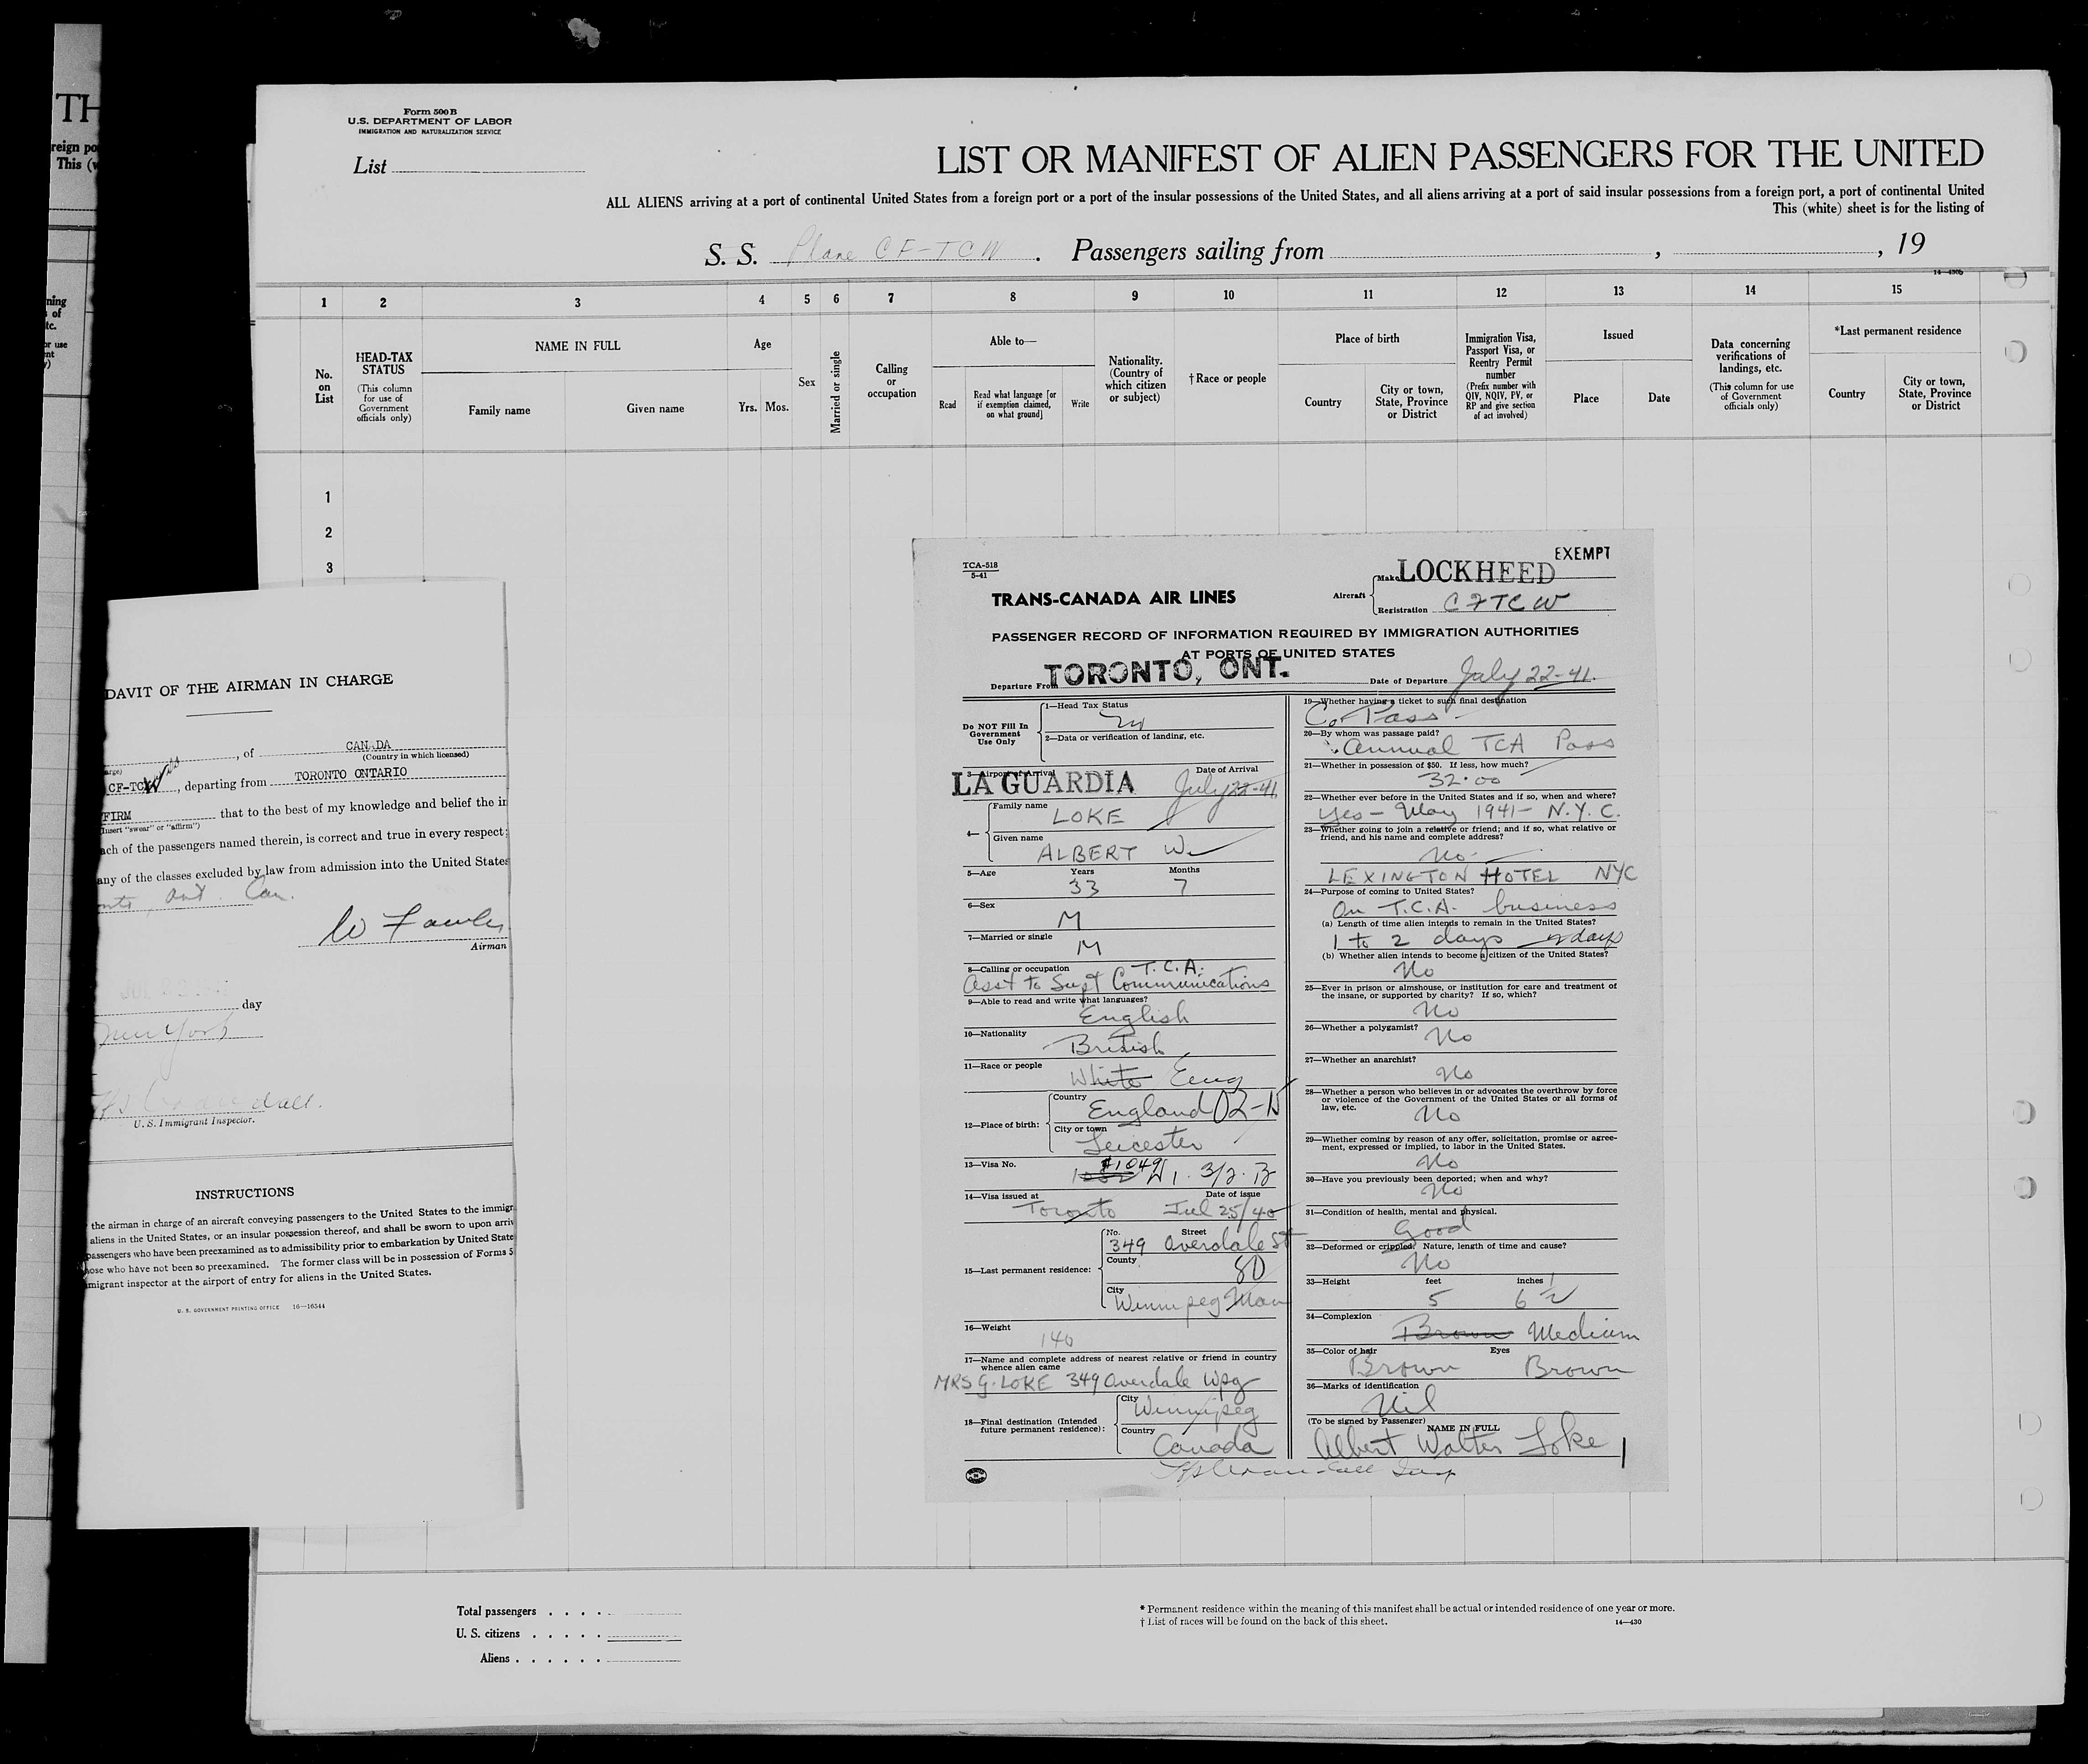 TH
reign po
This (w
ning
s of
tc.
or use
nt
y)
Form 500 B
U.S. DEPARTMENT OF LABOR
IMMIGRATION AND NATURALIZATION SERVICE
List
LIST OR MANIFEST OF ALIEN PASSENGERS FOR THE UNITED
ALL ALIENS arriving at a port of continental United States from a foreign port or a port of the insular possessions of the United States, and all aliens arriving at a port of said insular possessions from a foreign port, a port of continental United
This (white) sheet is for the listing of
S. S. Plane CF-TCW . Passengers sailing from , , 19
14—430b
1 2 3 4 5 6 7 8 9 10 11 12 13 14 15
No. on List
HEAD-TAX STATUS
(This column for use of Government officials only)
NAME IN FULL
Family name Given name
Age
Yrs. Mos.
Sex
Married or single
Calling or occupation
Able to—
Read
Read what language [or if exemption claimed, on what ground]
Write
Nationality. (Country of which citizen or subject)
†Race or people
Place of birth
Country
City or town, State, Province or District
Immigration Visa, Passport Visa, or Reentry Permit number
(Prefix number with QIV, NQIV, PV, or RP and give section of act involved)
Issued
Place Date
Data concerning verifications of landings, etc.
(This column for use of Government officials only)
*Last permanent residence
Country
City or town, State, Province or District
1
2
3
DAVIT OF THE AIRMAN IN CHARGE
, of CANADA
arge) (Country in which licensed)
CF-TCW , departing from TORONTO ONTARIO
FIRM that to the best of my knowledge and belief the in
(Insert "swear" or "affirm")
ach of the passengers named therein, is correct and true in every respect;
any of the classes excluded by law from admission into the United States
nto, Ont. Can.
W Fowler
Airman
day
New York
U. S. Immigrant Inspector.
INSTRUCTIONS
the airman in charge of an aircraft conveying passengers to the United States to the immigr
aliens in the United States, or an insular possession thereof, and shall be sworn to upon arriv
passengers who have been preexamined as to admissibility prior to embarkation by United State
hose who have not been so preexamined. The former class will be in possession of Forms 5
migrant inspector at the airport of entry for aliens in the United States.
U. S. GOVERNMENT PRINTING OFFICE 16—16544
EXEMPT
TCA-518
5-41
TRANS-CANADA AIR LINES
Aircraft
Make LOCKHEED
Registration CFTCW
PASSENGER RECORD OF INFORMATION REQUIRED BY IMMIGRATION AUTHORITIES
AT PORTS OF UNITED STATES
Departure From TORONTO, ONT.
Date of Departure July 22-41.
Do NOT Fill In Government Use Only
1—Head Tax Status
2—Data or verification of landing, etc.
3—Airport of Arrival Date of Arrival
LA GUARDIA July 22-41
4—
Family name
LOKE
Given name
ALBERT W.
5—Age Years Months
33 7
6—Sex
M
7—Married or single
M
8—Calling or occupation T.C.A.
Asst to Supt Communications
9—Able to read and write what languages?
English
10—Nationality
British
11—Race or people
White Eng
12—Place of birth:
Country
England 02-N
City or town
Leicester
13—Visa No.
#1049
1. 3/2. B
14—Visa issued at Date of issue
Toronto Jul 25/40
15—Last permanent residence:
No. Street
349 Overdale St
County
80
City
Winnipeg Man
16—Weight
140
17—Name and complete address of nearest relative or friend in country
whence alien came
MRS G. LOKE 349 Overdale Wpg
18—Final destination (Intended
future permanent residence):
City
Winnipeg
Country
Canada
19—Whether having a ticket to such final destination
Co Pass -
20—By whom was passage paid?
Annual TCA Pass
21—Whether in possession of $50. If less, how much?
32.00
22—Whether ever before in the United States and if so, when and where?
Yes - May 1941 - N.Y.C.
23—Whether going to join a relative or friend; and if so, what relative or
friend, and his name and complete address?
No -
LEXINGTON HOTEL NYC
24—Purpose of coming to United States?
On T.C.A. business
(a) Length of time alien intends to remain in the United States?
1 to 2 days 2 days
(b) Whether alien intends to become a citizen of the United States?
No
25—Ever in prison or almshouse, or institution for care and treatment of
the insane, or supported by charity? If so, which?
No
26—Whether a polygamist?
No
27—Whether an anarchist?
No
28—Whether a person who believes in or advocates the overthrow by force
or violence of the Government of the United States or all forms of
law, etc.
No
29—Whether coming by reason of any offer, solicitation, promise or agree-
ment, expressed or implied, to labor in the United States.
No
30—Have you previously been deported; when and why?
No
31—Condition of health, mental and physical.
Good
32—Deformed or crippled. Nature, length of time and cause?
No
33—Height feet inches
5 6 1/2
34—Complexion
Brown Medium
35—Color of hair Eyes
Brown Brown
36—Marks of identification
Nil
(To be signed by Passenger)
NAME IN FULL
Albert Walter Loke
Total passengers . . . .
U. S. citizens . . . . .
Aliens . . . . . .
* Permanent residence within the meaning of this manifest shall be actual or intended residence of one year or more.
† List of races will be found on the back of this sheet.
14—430